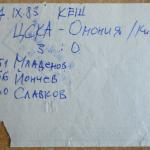 IX.83 КЕШ
ЦСКА - Омония /Ки
3 : 0
Младенов
Йончев
Славков